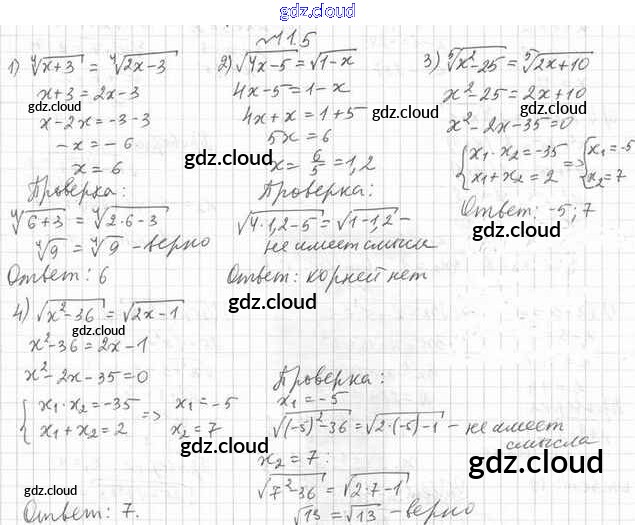 gdz.cloud
№11.5
1) ∜(x+3) = ∜(2x-3)
x+3 = 2x-3
gdz.cloud
x-2x = -3-3
-x = -6
x = 6
Проверка:
∜(6+3) = ∜(2·6-3)
∜9 = ∜9 - верно
gdz.cloud
Ответ: 6
2) √(4x-5) = √(1-x)
4x-5 = 1-x
4x+x = 1+5
5x = 6
gdz.cloud
x = 6/5 = 1,2
Проверка:
√(4·1,2-5) = √(1-1,2) -
не имеет смысла
Ответ: корней нет
gdz.cloud
3) ⁵√(x²-25) = ⁵√(2x+10)
x²-25 = 2x+10
gdz.cloud
x²-2x-35=0
{x₁·x₂ = -35
x₁+x₂ = 2 => {x₁ = -5
x₂ = 7
Ответ: -5; 7
gdz.cloud
4) √(x²-36) = √(2x-1)
gdz.cloud
x²-36 = 2x-1
x²-2x-35=0
{x₁·x₂ = -35
x₁+x₂ = 2 => x₁ = -5
x₂ = 7
gdz.cloud
Проверка:
gdz.cloud
x₁ = -5
√((-5)²-36) = √(2·(-5)-1) - не имеет
смысла
gdz.cloud
x₂ = 7:
√(7²-36) = √(2·7-1)
√13 = √13 - верно
gdz.cloud
gdz.cloud
Ответ: 7.